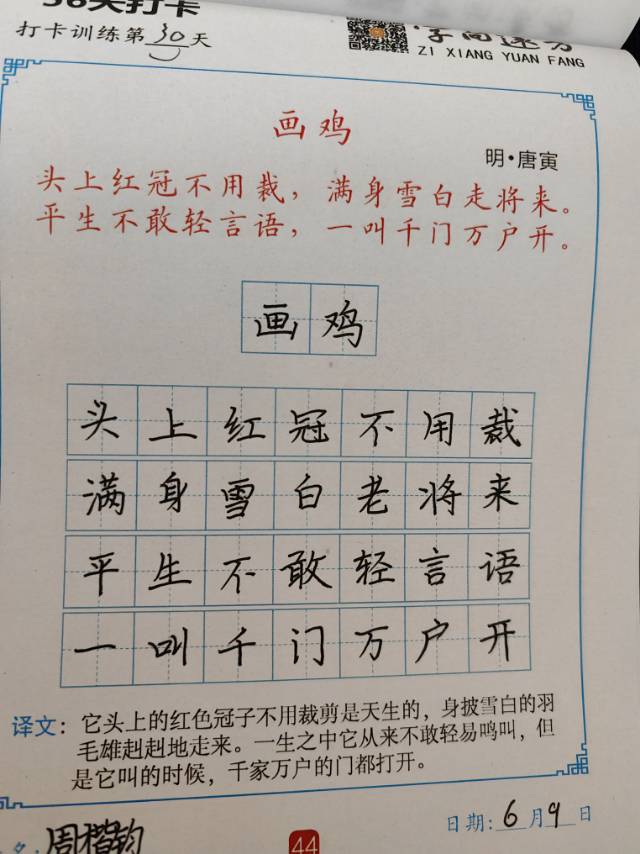 打卡训练第30天
ZI XIANG YUAN FANG
画鸡
明·唐寅
头上红冠不用裁，满身雪白走将来。
平生不敢轻言语，一叫千门万户开。
画鸡
头上红冠不用裁
满身雪白老将来
平生不敢轻言语
一叫千门万户开
译文：它头上的红色冠子不用裁剪是天生的，身披雪白的羽
毛雄赳赳地走来。一生之中它从来不敢轻易鸣叫，但
是它叫的时候，千家万户的门都打开。
日期：6月9日
名：周楷钧
44